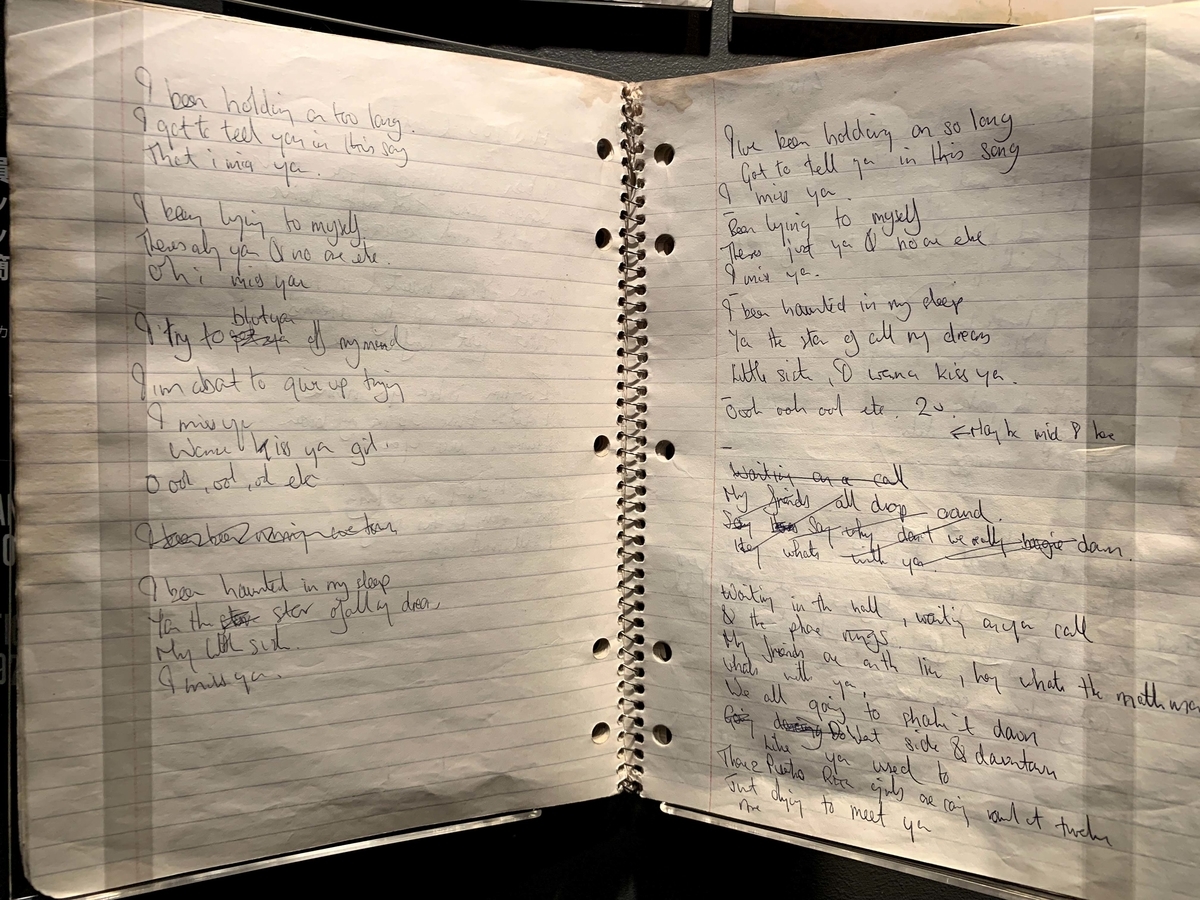 I been holding on too long.
I got to tell ya in this song
That i miss ya.
I been lying to myself.
Theres only ya & no one else.
Oh i miss ya
blot ya
I try to off my mind
I im about to give up trying
I miss ya
Wanna kiss ya girl.
O ooh, ooh, ooh etc
I been haunted in my sleep
Ya the star of all my drea
My little sister.
I miss ya.
I've been holding on so long
Got to tell ya in this song
I miss ya
Been lying to myself
Theres just ya & no one else
I miss ya.
I been haunted in my sleep
Ya the star of all my dreams
Little sister, I wanna kiss ya.
Oooh ooh ooh etc. 2v.
← Maybe mid 8 here
Waiting on a call
My friends all drop around.
Say say why don't we really boogie down.
Hey whats with ya
Waiting in the hall, waiting on ya call
& the phone rings.
My friends are on the line, hey whats the matter man
whats with ya,
We all going to shake it down
Go West side & downtown
Like ya used to
There 2 Puerto Rican girls are coming round at twelve
Just dying to meet ya